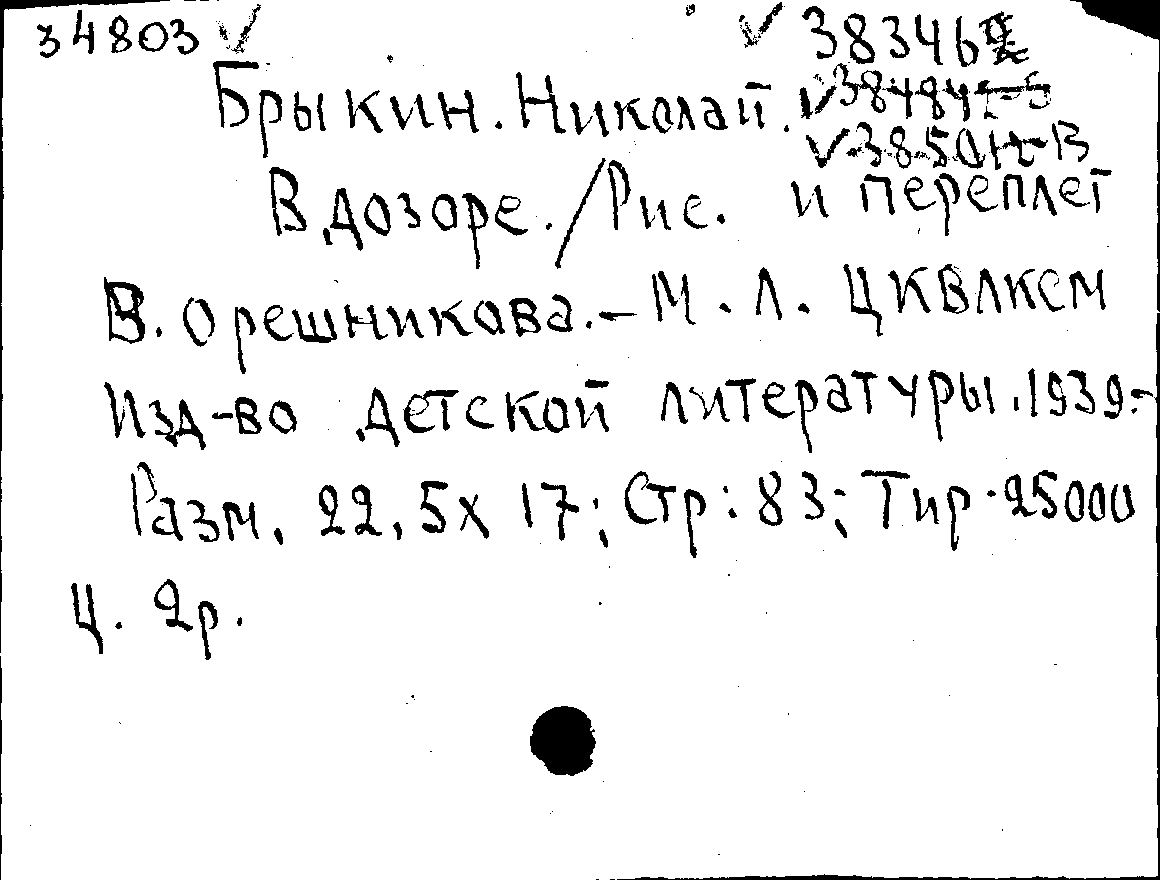 34803 ✓ ✓ 38346
Брыкин. Николай.
В дозоре. / Рис. и переплет
В. Орешникова. – М. Л. ЦКВЛКСМ
Изд-во детской литературы. 1939. –
Разм. 22,5х 17; Стр: 83; Тир. 25000
Ц. 2р.